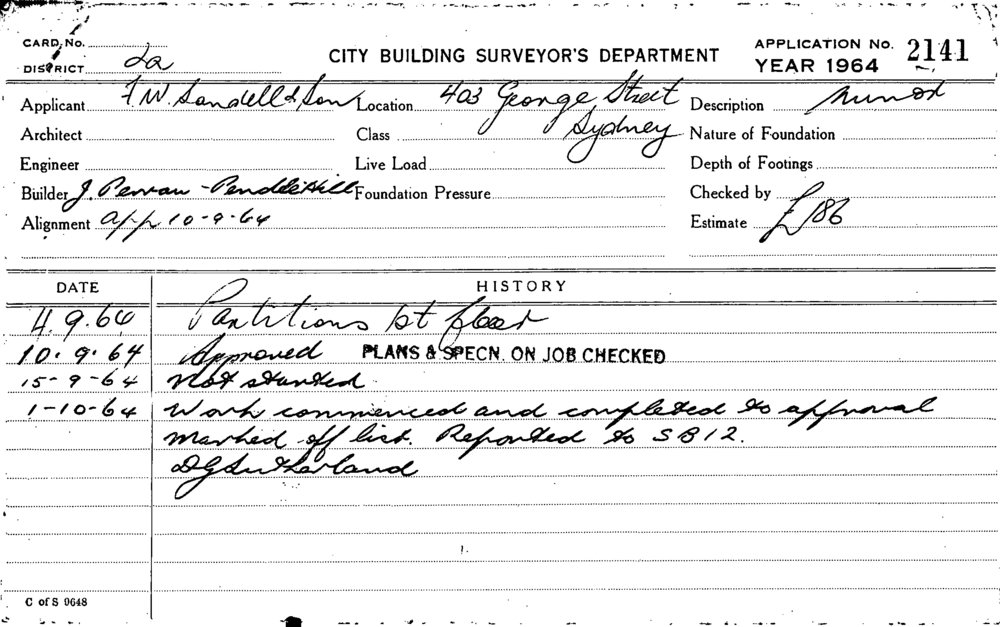 CARD No.
DISTRICT 2a
CITY BUILDING SURVEYOR'S DEPARTMENT
APPLICATION No. 2141
YEAR 1964
Applicant F.W. Sandell & Son
Location 403 George Street
Sydney
Description Minor
Architect
Class
Nature of Foundation
Engineer
Live Load
Depth of Footings
Builder J. - Pendle Hill
Foundation Pressure
Checked by
Alignment app 10-9-64
Estimate £186
DATE HISTORY
4.9.64 Partitions 1st floor
10.9.64 Approved PLANS & SPECN. ON JOB CHECKED
15-9-64 Not started
1-10-64 Work commenced and completed to approval
marked off list. Reported to SB12.
DG Sutherland
C of S 9648